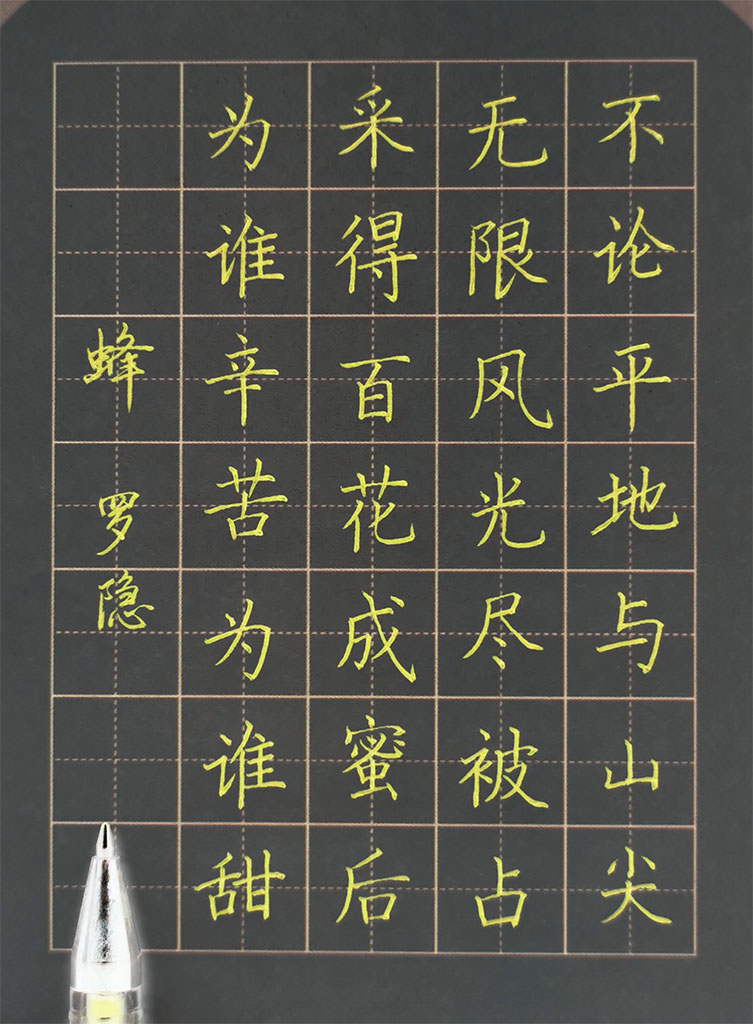 不论平地与山尖
无限风光尽被占
采得百花成蜜后
为谁辛苦为谁甜
蜂 罗隐